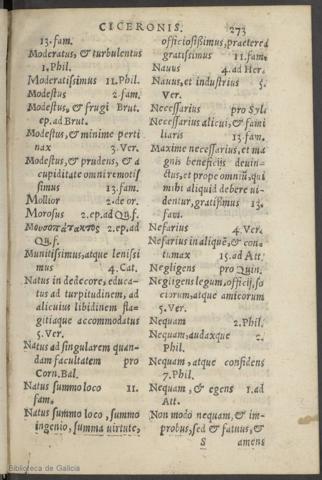 CICERONIS. 273
13. fam.
Moderatus, & turbulentus
1. Phil.
Moderatissimus 11. Phil.
Modestus 2. fam.
Modestus, & frugi Brut.
ep. ad Brut.
Modestus, & minime perti
nax 3. Ver.
Modestus, & prudens, & a
cupiditate omni remotis
simus 13. fam.
Mollior 2. de or.
Morosus 2. ep. ad Q. f.
2. ep. ad
Q. f.
Munitissimus, atque lenissi
mus 4. Cat.
Natus in dedecore, educa-
tus ad turpitudinem, ad
alicuius libidinem fla-
gitiaque accommodatus
5. Ver.
Natus ad singularem quan-
dam facultatem pro
Corn. Bal.
Natus summo loco 11.
fam.
Natus summo loco, summo
ingenio, summa virtute,
officiosissimus, praeterea
gratissimus 11. fam.
Navus 4. ad Her.
Navus, et industrius 5.
Ver.
Necessarius pro Syl.
Necessarius alicui, & fami
liaris 13. fam.
Maxime necessarius, et ma
gnis beneficiis devin-
ctus, et prope omniũ, qui
mihi aliquid debere vi-
dentur, gratissimus 13.
fam.
Nefarius 4. Ver.
Nefarius in aliquẽ, & con-
tumax 15. ad Att.
Negligens pro Quin.
Negligens legum, officij, so
ciorum, atque amicorum
5. Ver.
Nequam 2. Phil.
Nequam, audaxque 2.
Phil.
Nequam, atque confidens
7. Phil.
Nequam, & egens 1. ad
Att.
Non modo nequam, & im-
probus, sed & fatuus, &
S amens
Biblioteca de Galicia